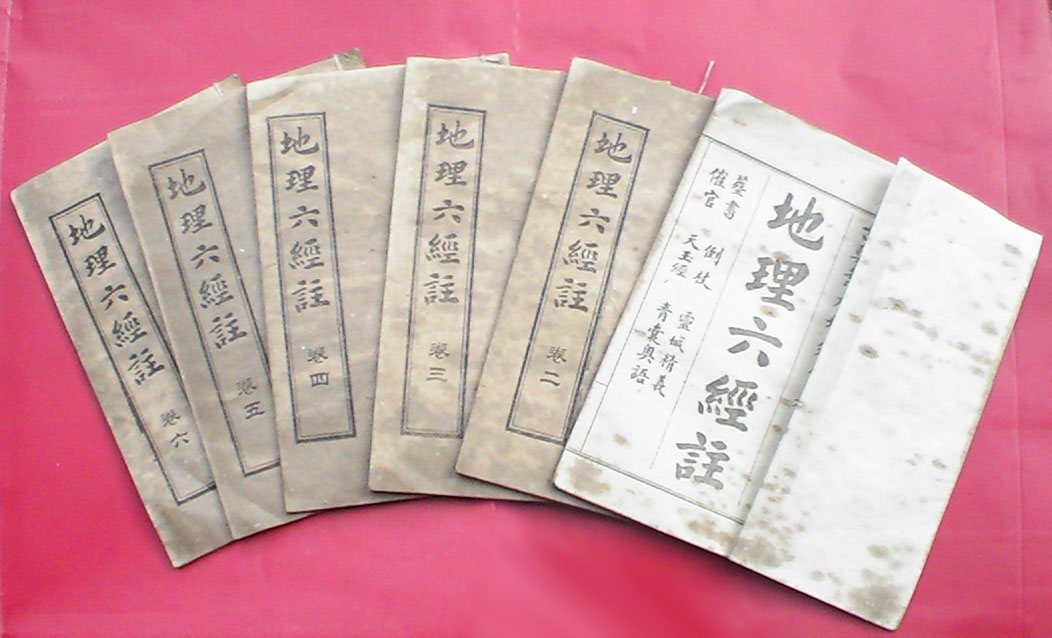 地理六經註
葬書 倒杖 靈城精義
催官 天玉經 青囊奥語
地理六經註 卷二
地理六經註 卷三
地理六經註 卷四
地理六經註 卷五
地理六經註 卷六